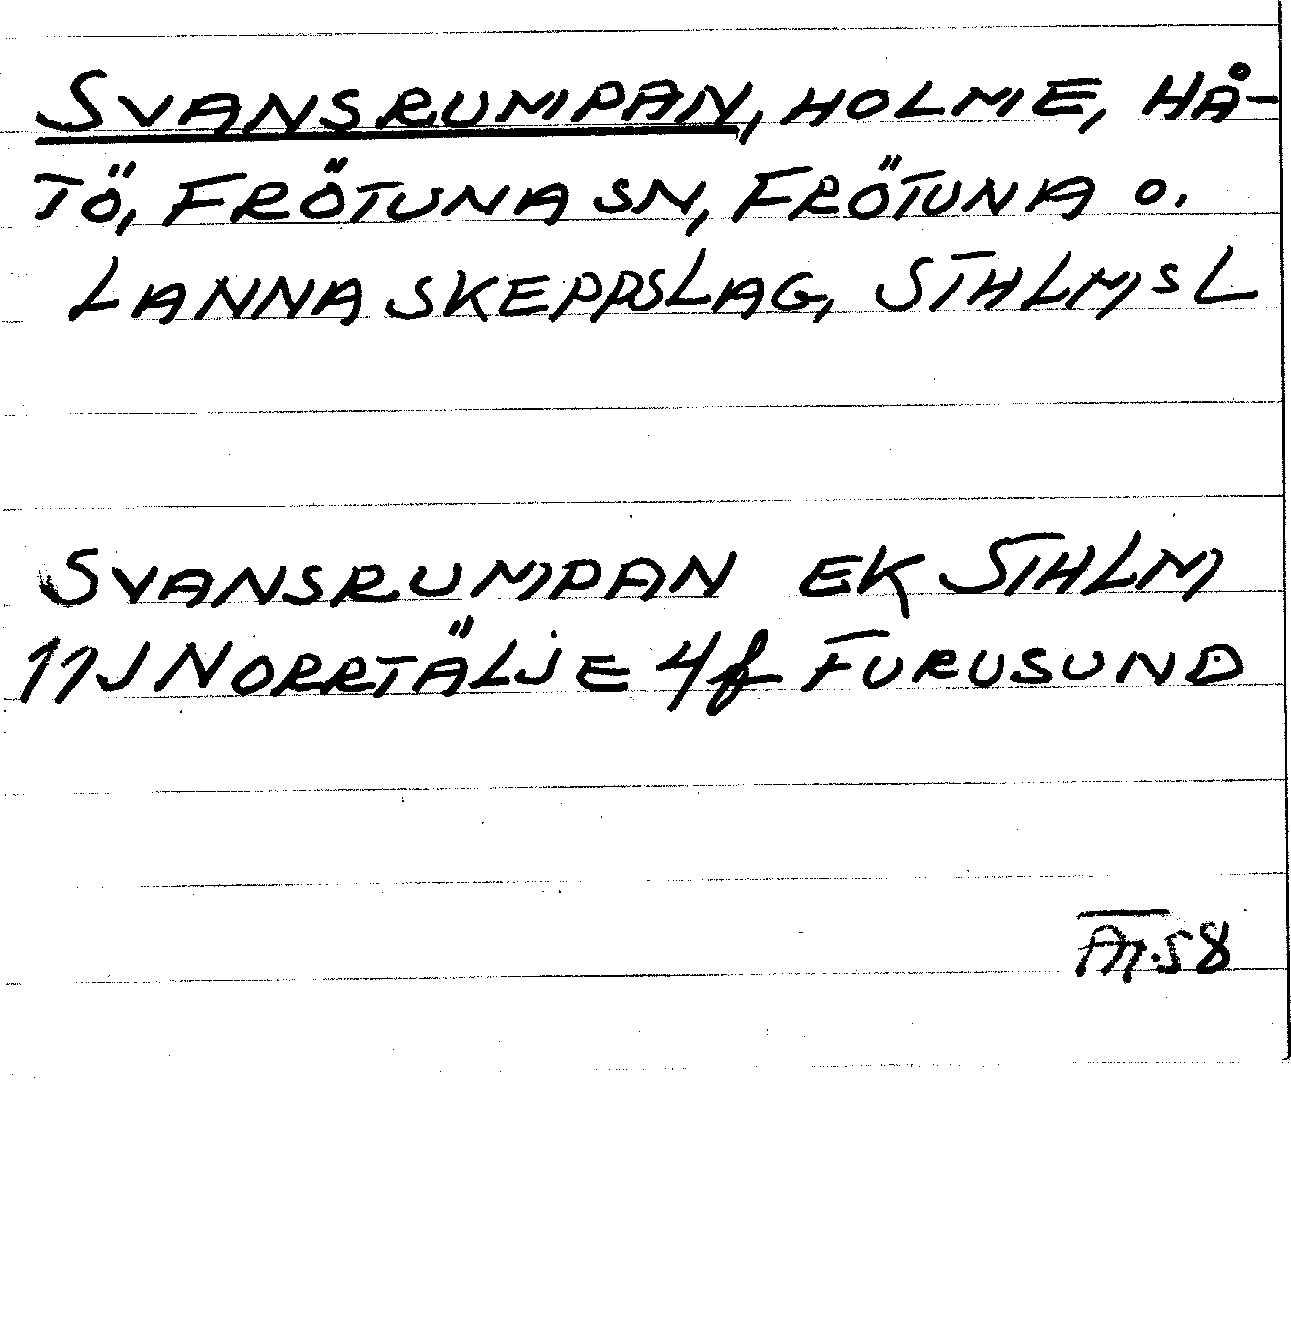 SVANSRUMPAN, HOLME, HÅ-
TÖ, FRÖTUNA SN, FRÖTUNA O.
LANNA SKEPPSLAG, STHLMS L
SVANSRUMPAN EK STHLM
11J NORRTÄLJE 4f FURUSUND
58